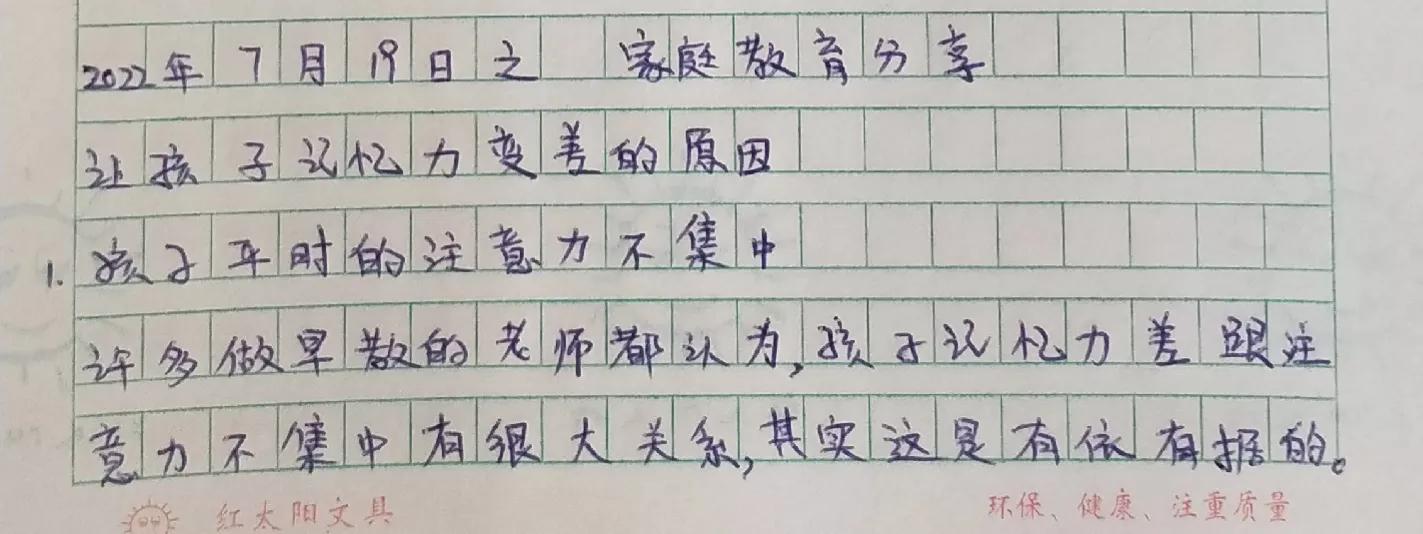 2022年7月19日之 家庭教育分享
让孩子记忆力变差的原因
1. 孩子平时的注意力不集中
许多做早教的老师都认为,孩子记忆力差跟注
意力不集中有很大关系,其实这是有依有据的。
红太阳文具 环保、健康、注重质量